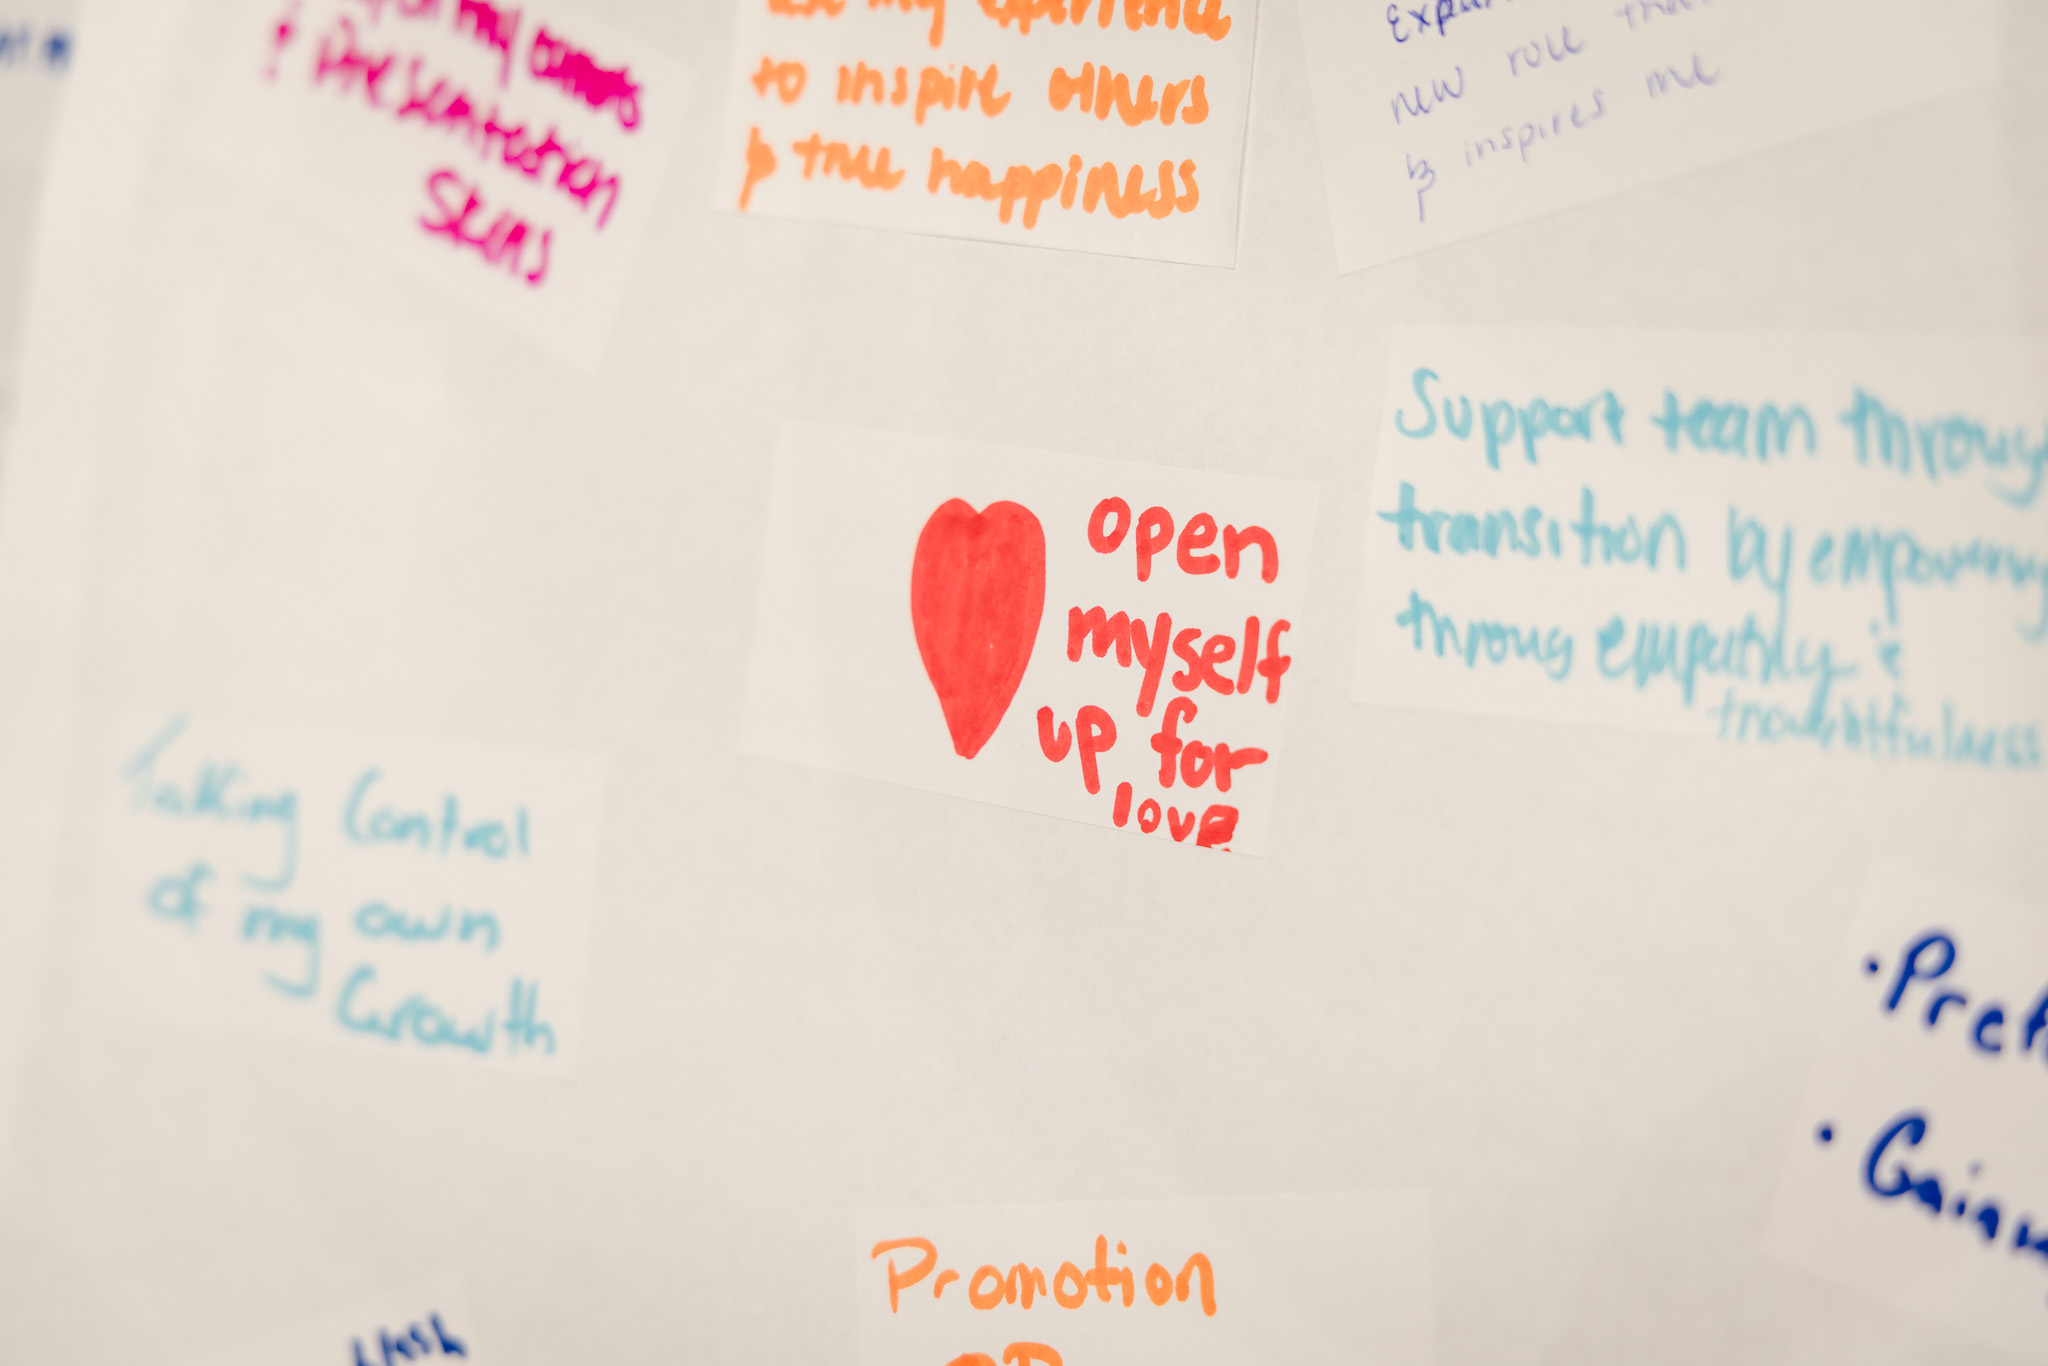 my
& Presentation
Skills
use my experience
to inspire others
& true happiness
new role that
& inspires me
open
myself
up for
love
Support team throug
transition by empowering
throug empathy &
thoughtfulness
Taking Control
of my own
Growth
• Pref
• Gain
Promotion